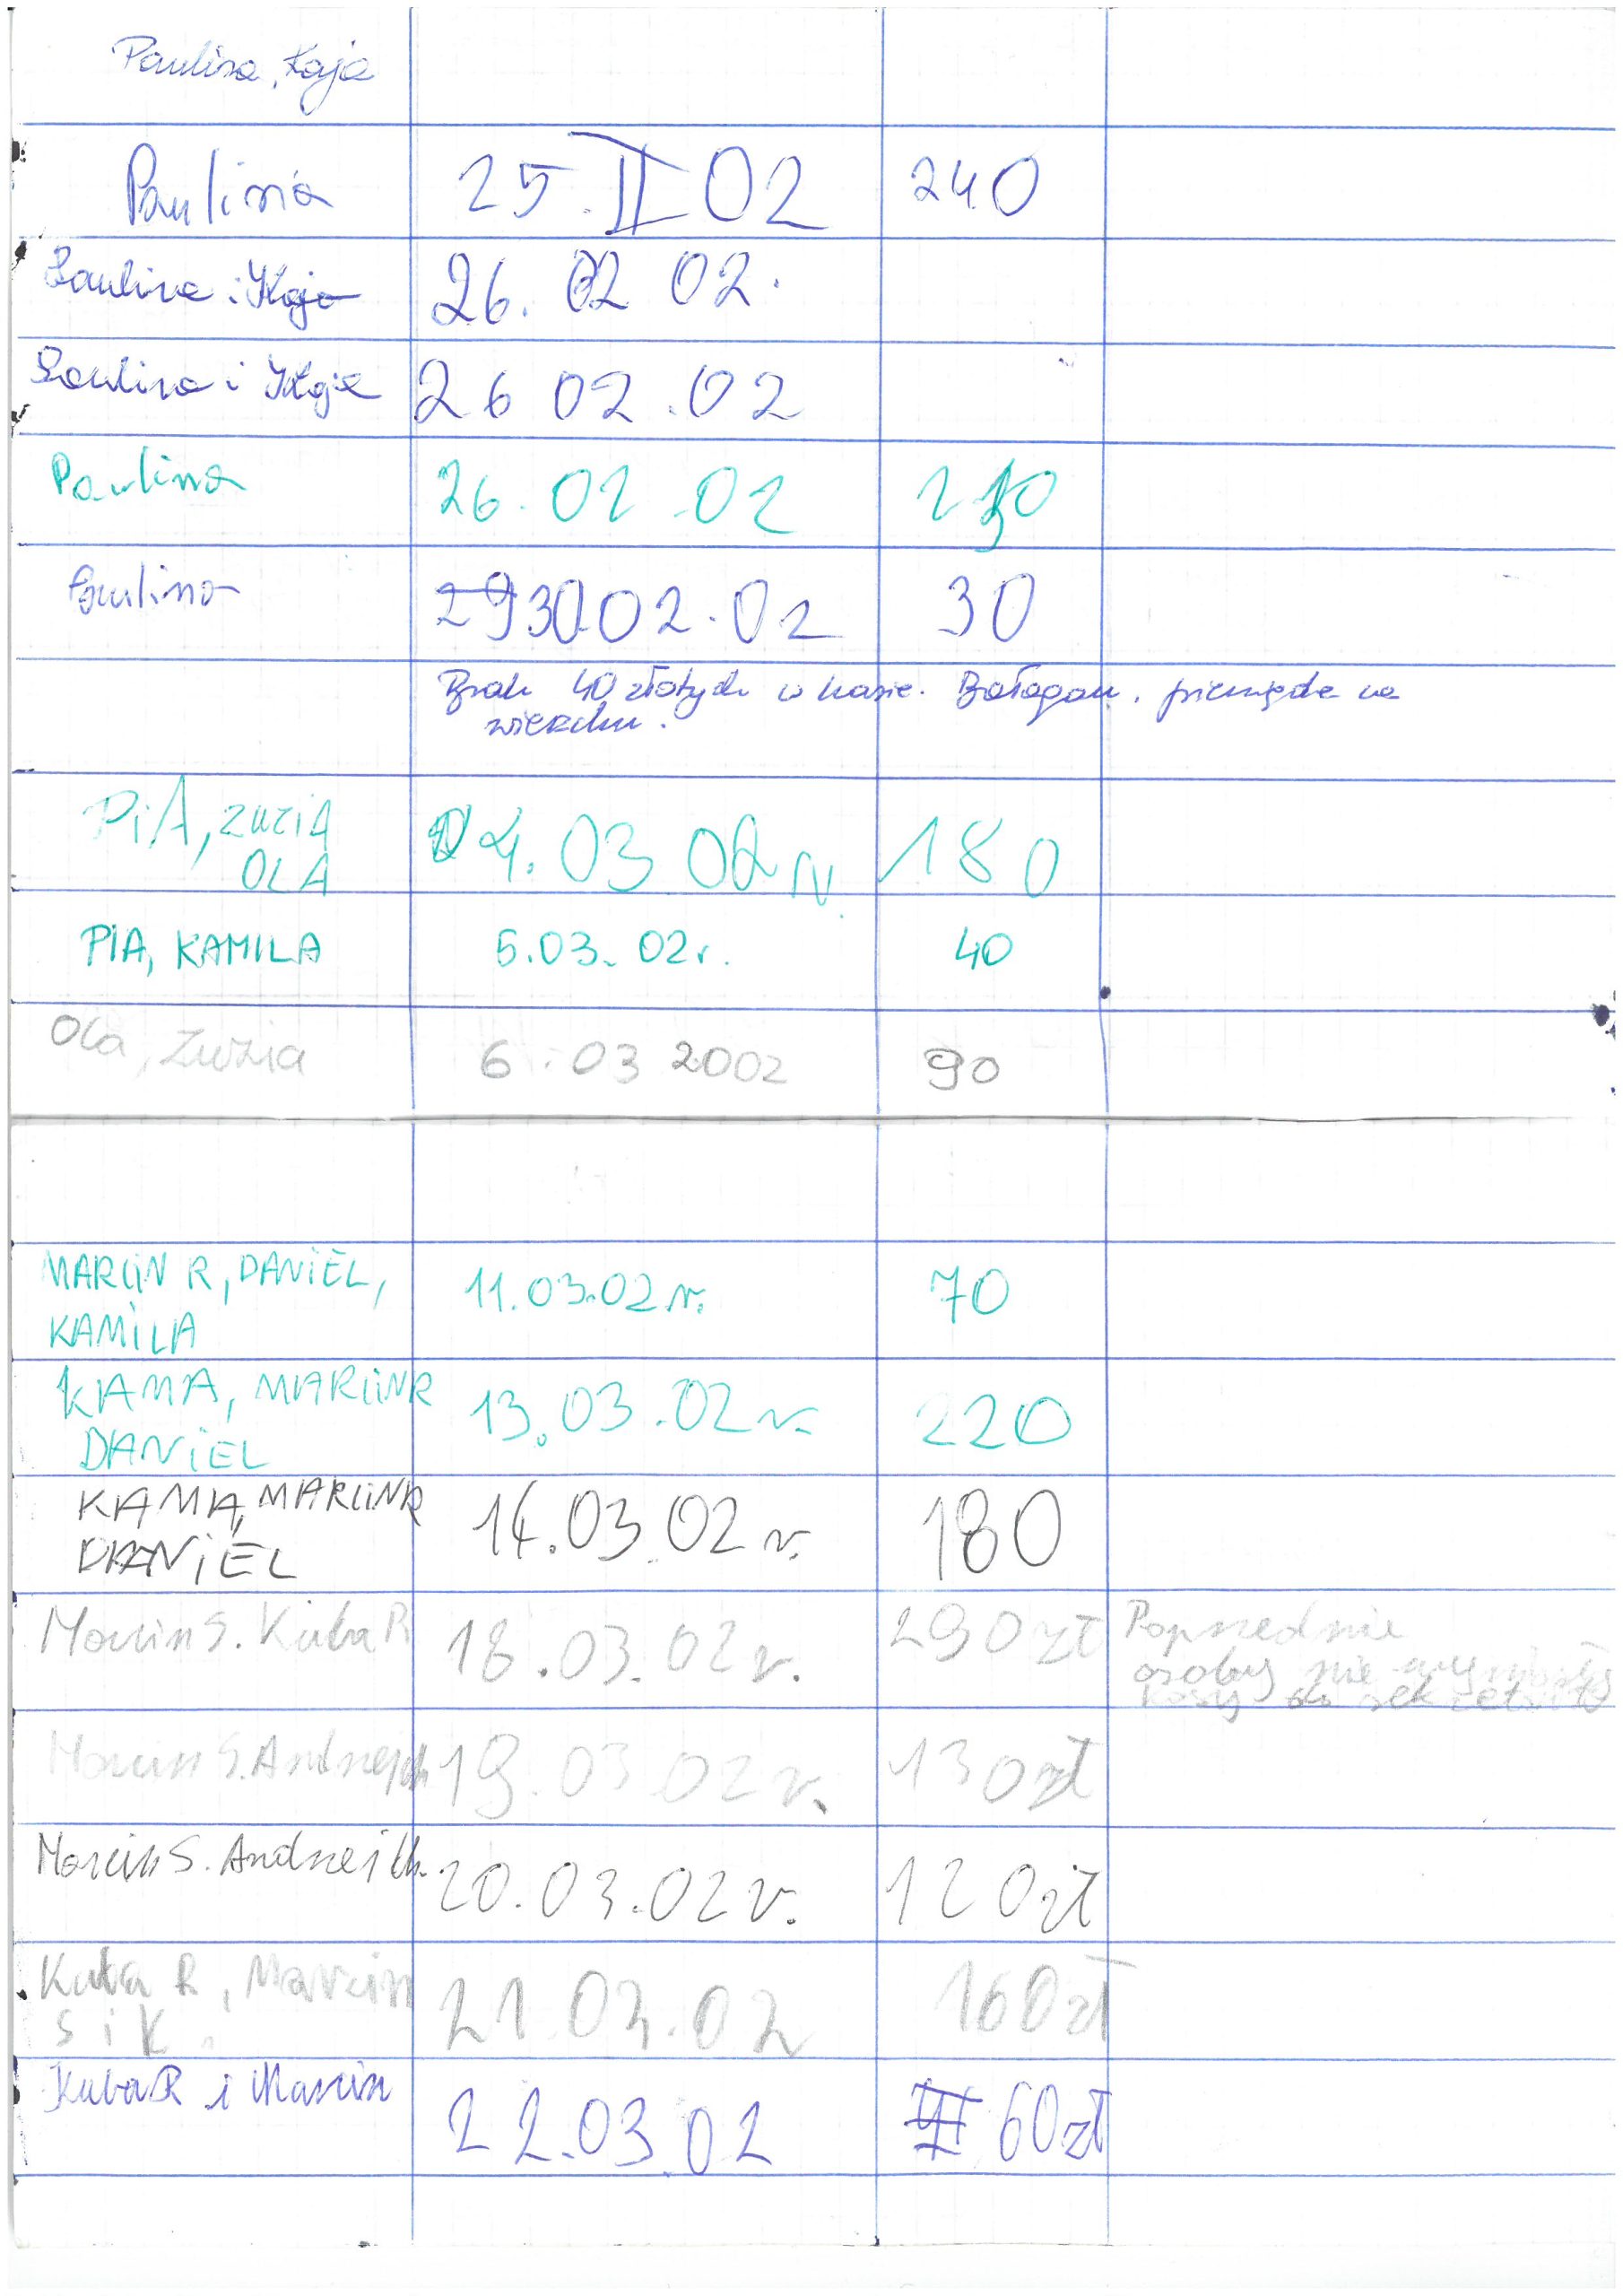 Paulina, Kaja
Paulina 25.II 02 240
Paulina i Kaja 26. 02 02.
Paulina i Kaja 26 02.02
Paulina 26.02.02
Paulina 293002.02 30
Brak 40 złotych w kasie. Bałagan, pieniądze na
wierzchu.
PiA, ZUZIA 04.03 02 r. 180
OLA
PIA, KAMILA 6.03. 02r. 40
Ola, Zuzia 6.03 2002 90
MARCiN R, DANiEL, 11.03.02 r. 70
KAMiLA
KAMA, MARCiN R 13.03.02 r. 220
DANiEL
KAMA, MARCiN R 14.03.02 r. 180
DANiEL
Marcin S. Kuba R 18.03.02 r. 290 zł Poprzednie
osoby nie wyniosły
kasy do
Marcin S. Andrzej 19.03 02 r. 130 zł
Marcin S. Andrzej 20.03.02 r. 120 zł
Kuba R, Marcin 21.03.02 160 zł
S i K.
Kuba R i Marcin 22.03.02 60 zł